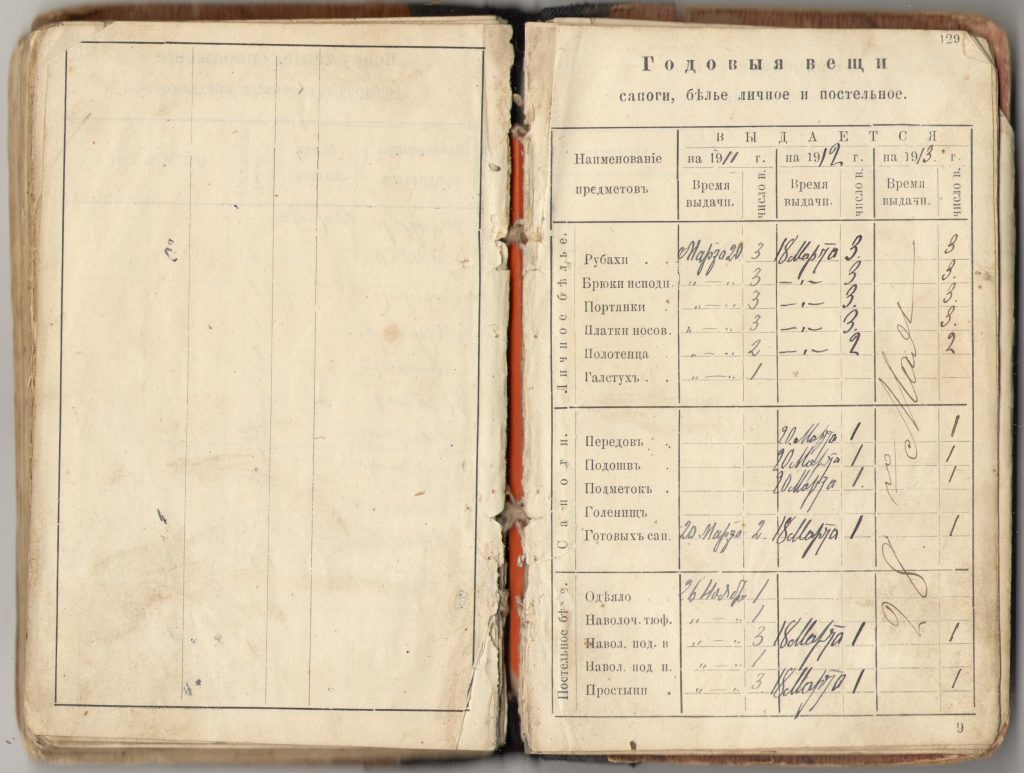 129
Годовыя вещи
сапоги, бѣлье личное и постельное.
ВЫДАЕТСЯ
Наименованіе предметовъ
на 1911 г. на 1912 г. на 1913 г.
Время выдачи. число в. Время выдачи. число в. Время выдачи. число в.
Личное бѣлье.
Рубахи . . Марта 20 3 18 Марта 3. 3
Брюки исподн. „ — „ 3 — „ — 3 3.
Портянки . „ — „ 3 — „ — 3. 3.
Платки носов. „ — „ 3 — „ — 3. 3.
Полотенца „ — „ 2 — „ — 2 2
Галстухъ . . „ — „ 1
28 Мая
Сапоги.
Передовъ . 20 Марта 1 1
Подошв . 20 Марта 1 1
Подметокъ . 20 Марта 1. 1
Голенищ
Готовыхъ сап. 20 Марта 2 18 Марта 1 1
Постельное бѣлье.
Одѣяло . 26 Ноябр 1
Наволоч. тюф. „ — „ 1
Навол. под. в „ — „ 3 18 Марта 1 1
Навол. под н. „ — „ 1
Простыни . „ — „ 3 18 Марта 1 1
9